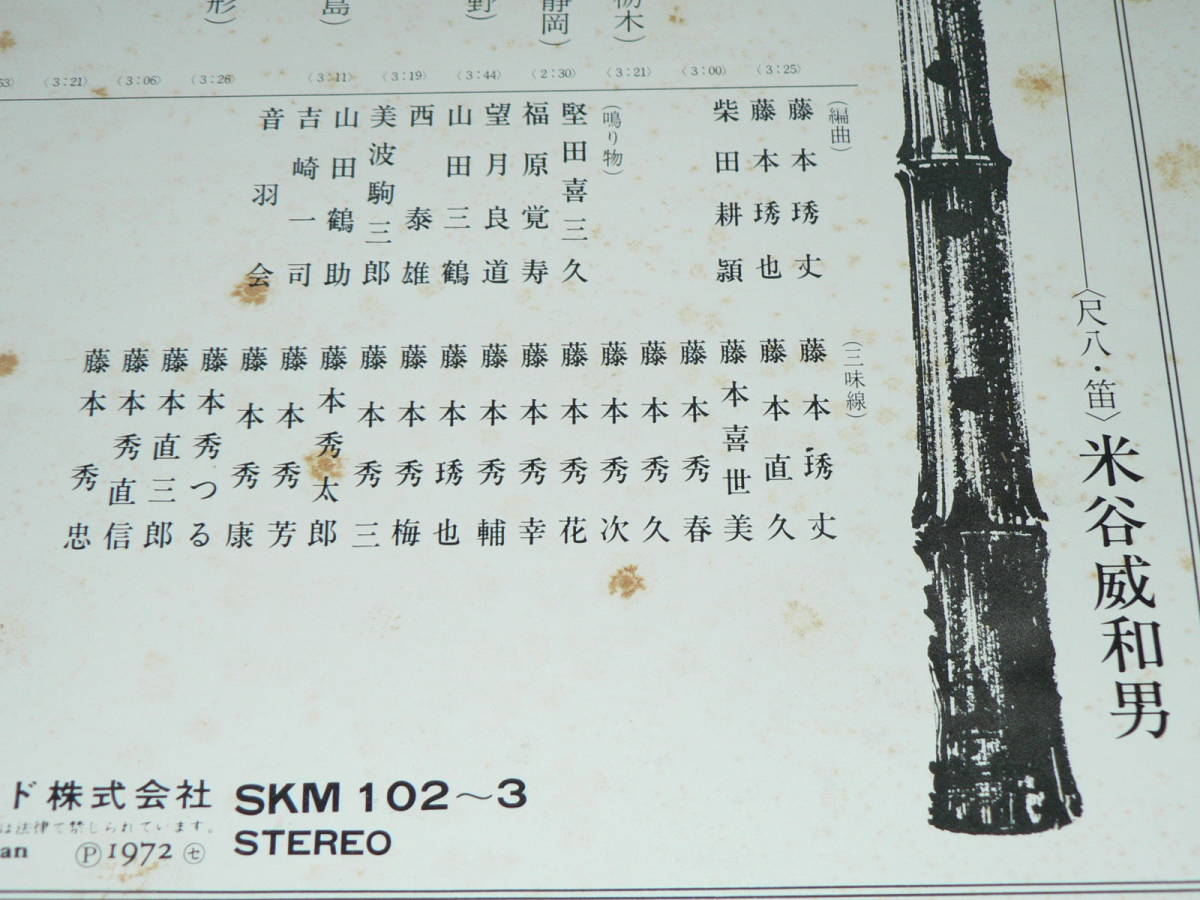 〈尺八・笛〉米谷威和男
栃木)
静岡)
野)
島)
形)
〈3:25〉
〈3:00〉
〈3:21〉
〈2:30〉
〈3:44〉
〈3:19〉
〈3:11〉
〈3:26〉
〈3:06〉
〈3:21〉
53〉
(編曲)
藤本琇丈
藤本琇也
柴田耕頴
(鳴り物)
堅田喜三久
福原覚寿
望月良道
山田三鶴
西泰雄
美波駒三郎
山田鶴助
吉崎一司
音羽会
(三味線)
藤本琇丈
藤本直久
藤本喜世美
藤本秀春
藤本秀久
藤本秀次
藤本秀花
藤本秀幸
藤本秀輔
藤本琇也
藤本秀梅
藤本秀三
藤本秀太郎
藤本秀芳
藤本秀康
藤本秀つる
藤本直三郎
藤本秀直信
藤本秀忠
ド株式会社 SKM 102～3
は法律で禁じられています。
STEREO
an Ⓟ1972 ㋝